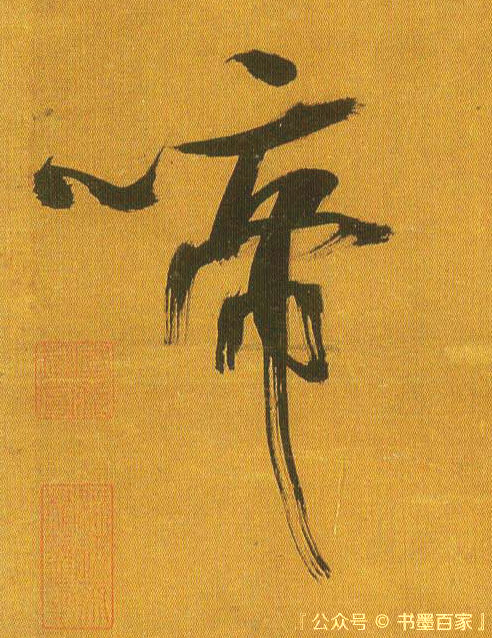 啼
「公众号 © 书墨百家」